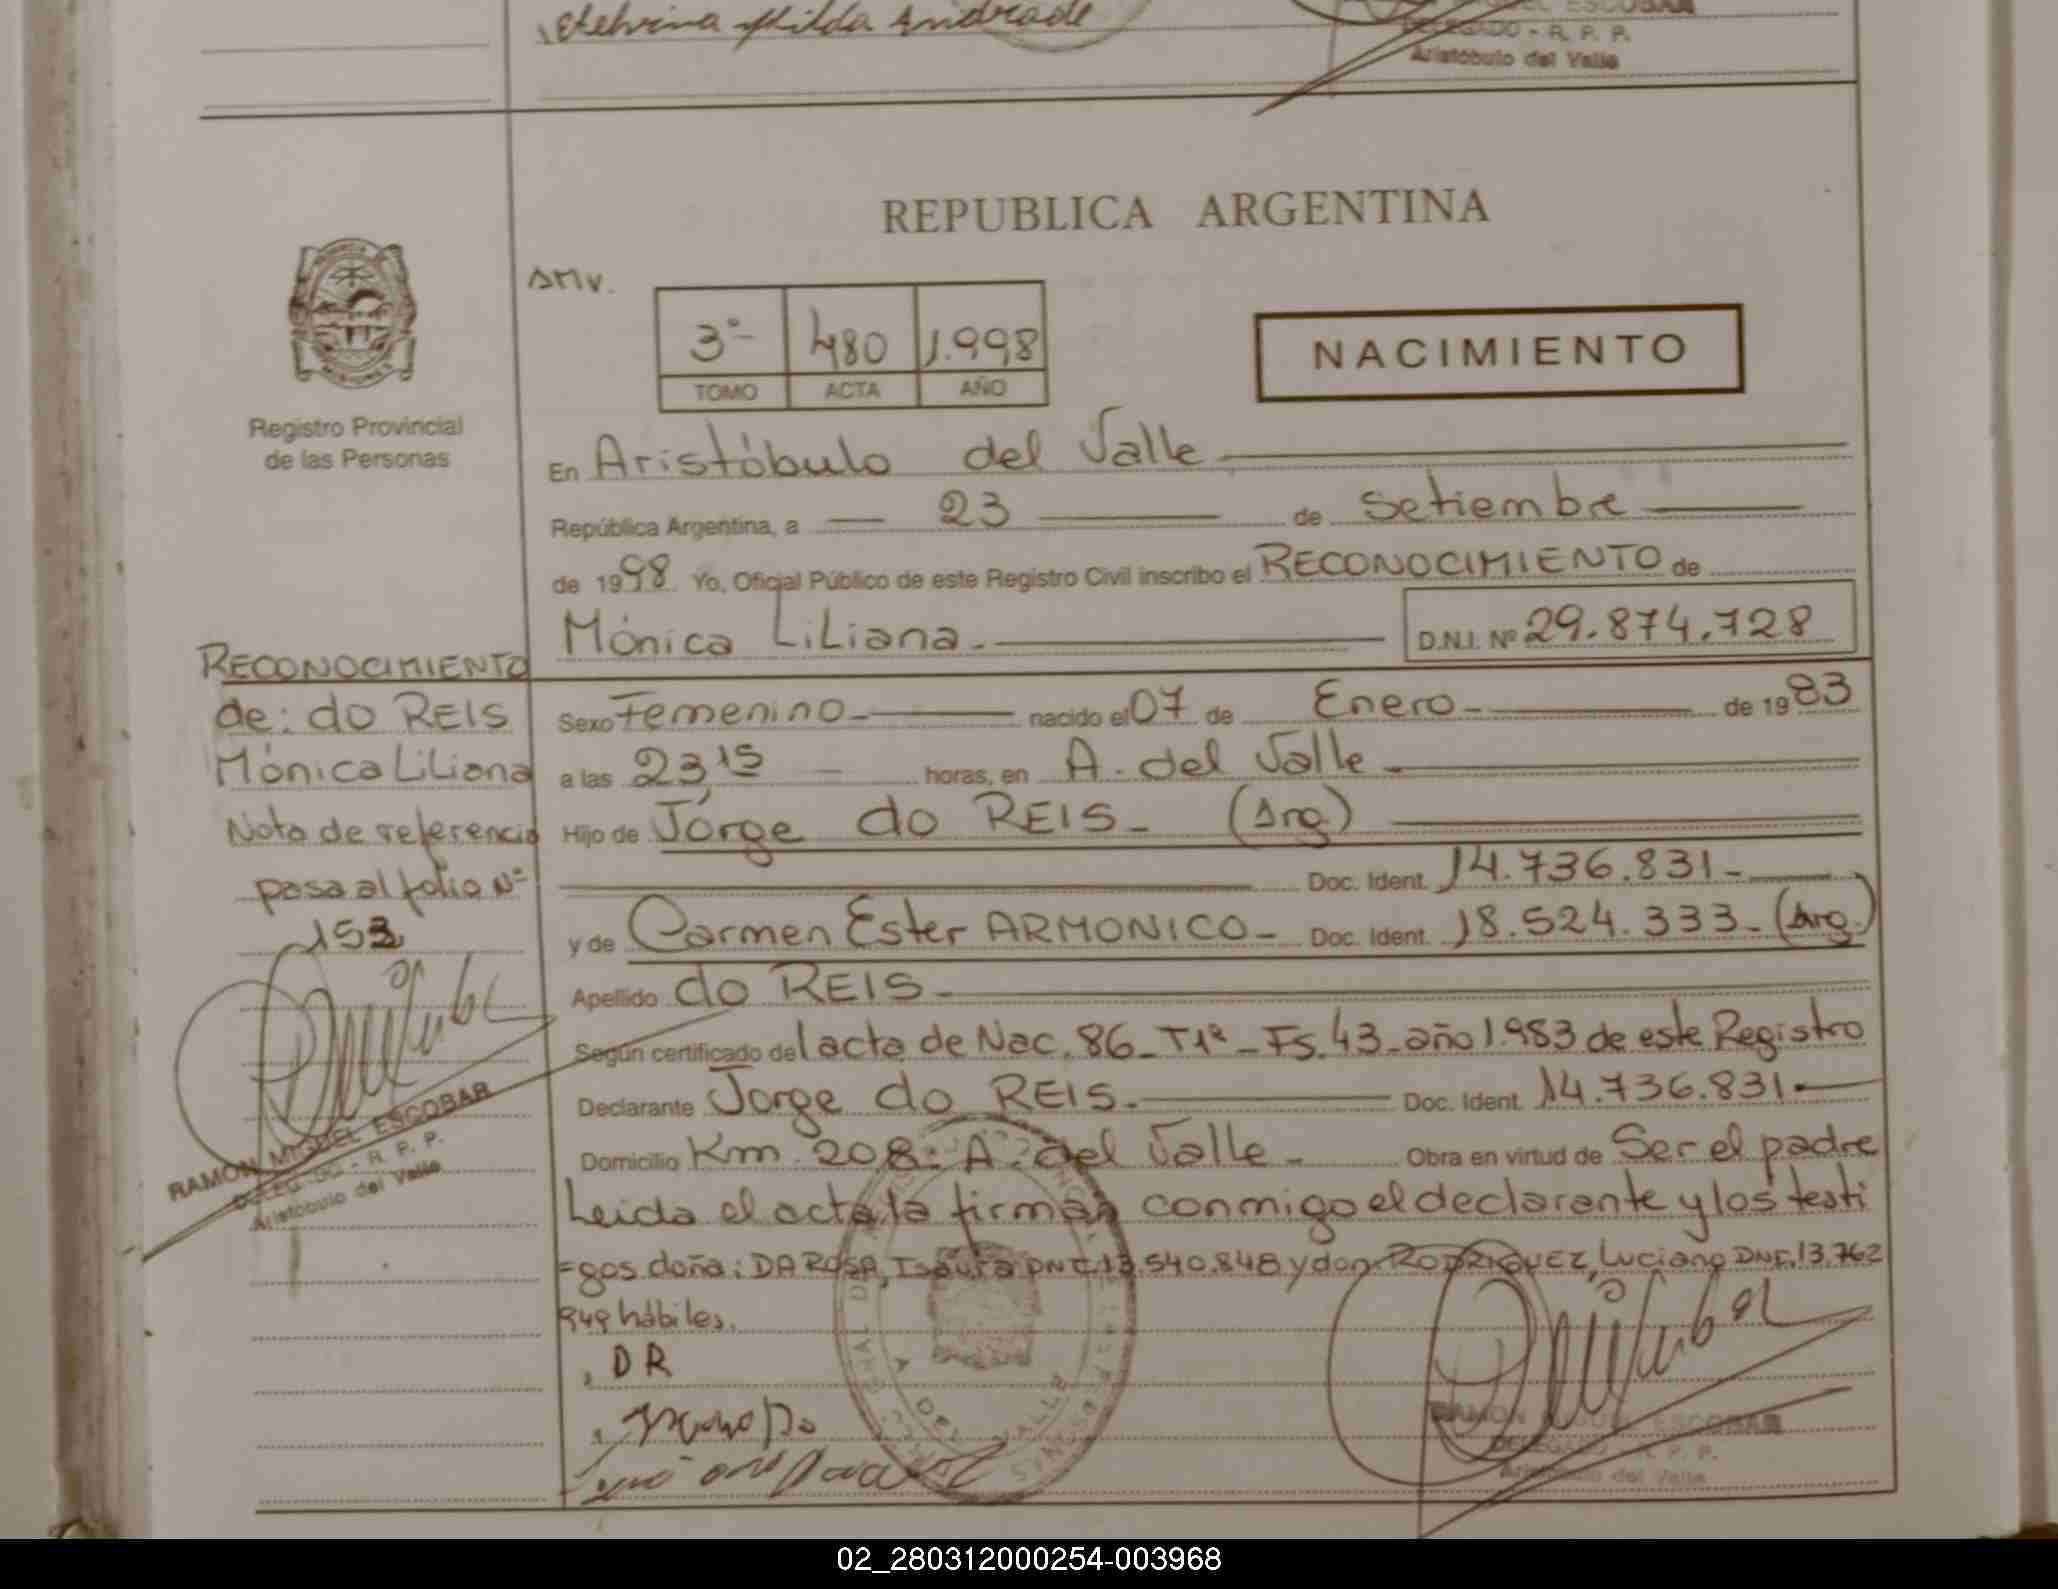 Hilda Andrade
ESCOBAR
DELEGADO - R. P. P.
Aristóbulo del Valle
REPUBLICA ARGENTINA
SMV.
3º 480 1.998
TOMO ACTA AÑO
NACIMIENTO
MISIONES
Registro Provincial
de las Personas
En Aristóbulo del Valle
República Argentina, a 23 de Setiembre
de 1998 Yo, Oficial Público de este Registro Civil inscribo el RECONOCIMIENTO de
Mónica LiLiana. D.N.I. Nº 29.874.728
RECONOCIMIENTO
de: do REIS
Mónica LiLiana
Nota de referencia
pasa al folio Nº
153
RAMON MIGUEL ESCOBAR
DELEGADO - R. P. P.
Aristóbulo del Valle
Sexo Femenino nacido el 07 de Enero de 1983
a las 23,15 horas, en A. del Valle
Hijo de Jorge do REIS (Arg)
Doc. Ident. 14.736.831
y de Carmen Ester ARMONICO Doc. Ident. 18.524.333 (Arg.)
Apellido do REIS
Según certificado del acta de Nac. 86 - T1º - Fs. 43 - año 1.983 de este Registro
Declarante Jorge do REIS. Doc. Ident. 14.736.831
Domicilio Km. 208. A. del Valle Obra en virtud de Ser el padre
Leida el acta, la firman conmigo el declarante y los testi
=gos doña: DA ROSA, Isaura DNI. 13.540.848 y don RODRIGUEZ, Luciano DNI. 13.762
949 hábiles.
DR
A. DEL VALLE
RAMON MIGUEL ESCOBAR
DELEGADO - R. P. P.
Aristóbulo del Valle
02_280312000254-003968